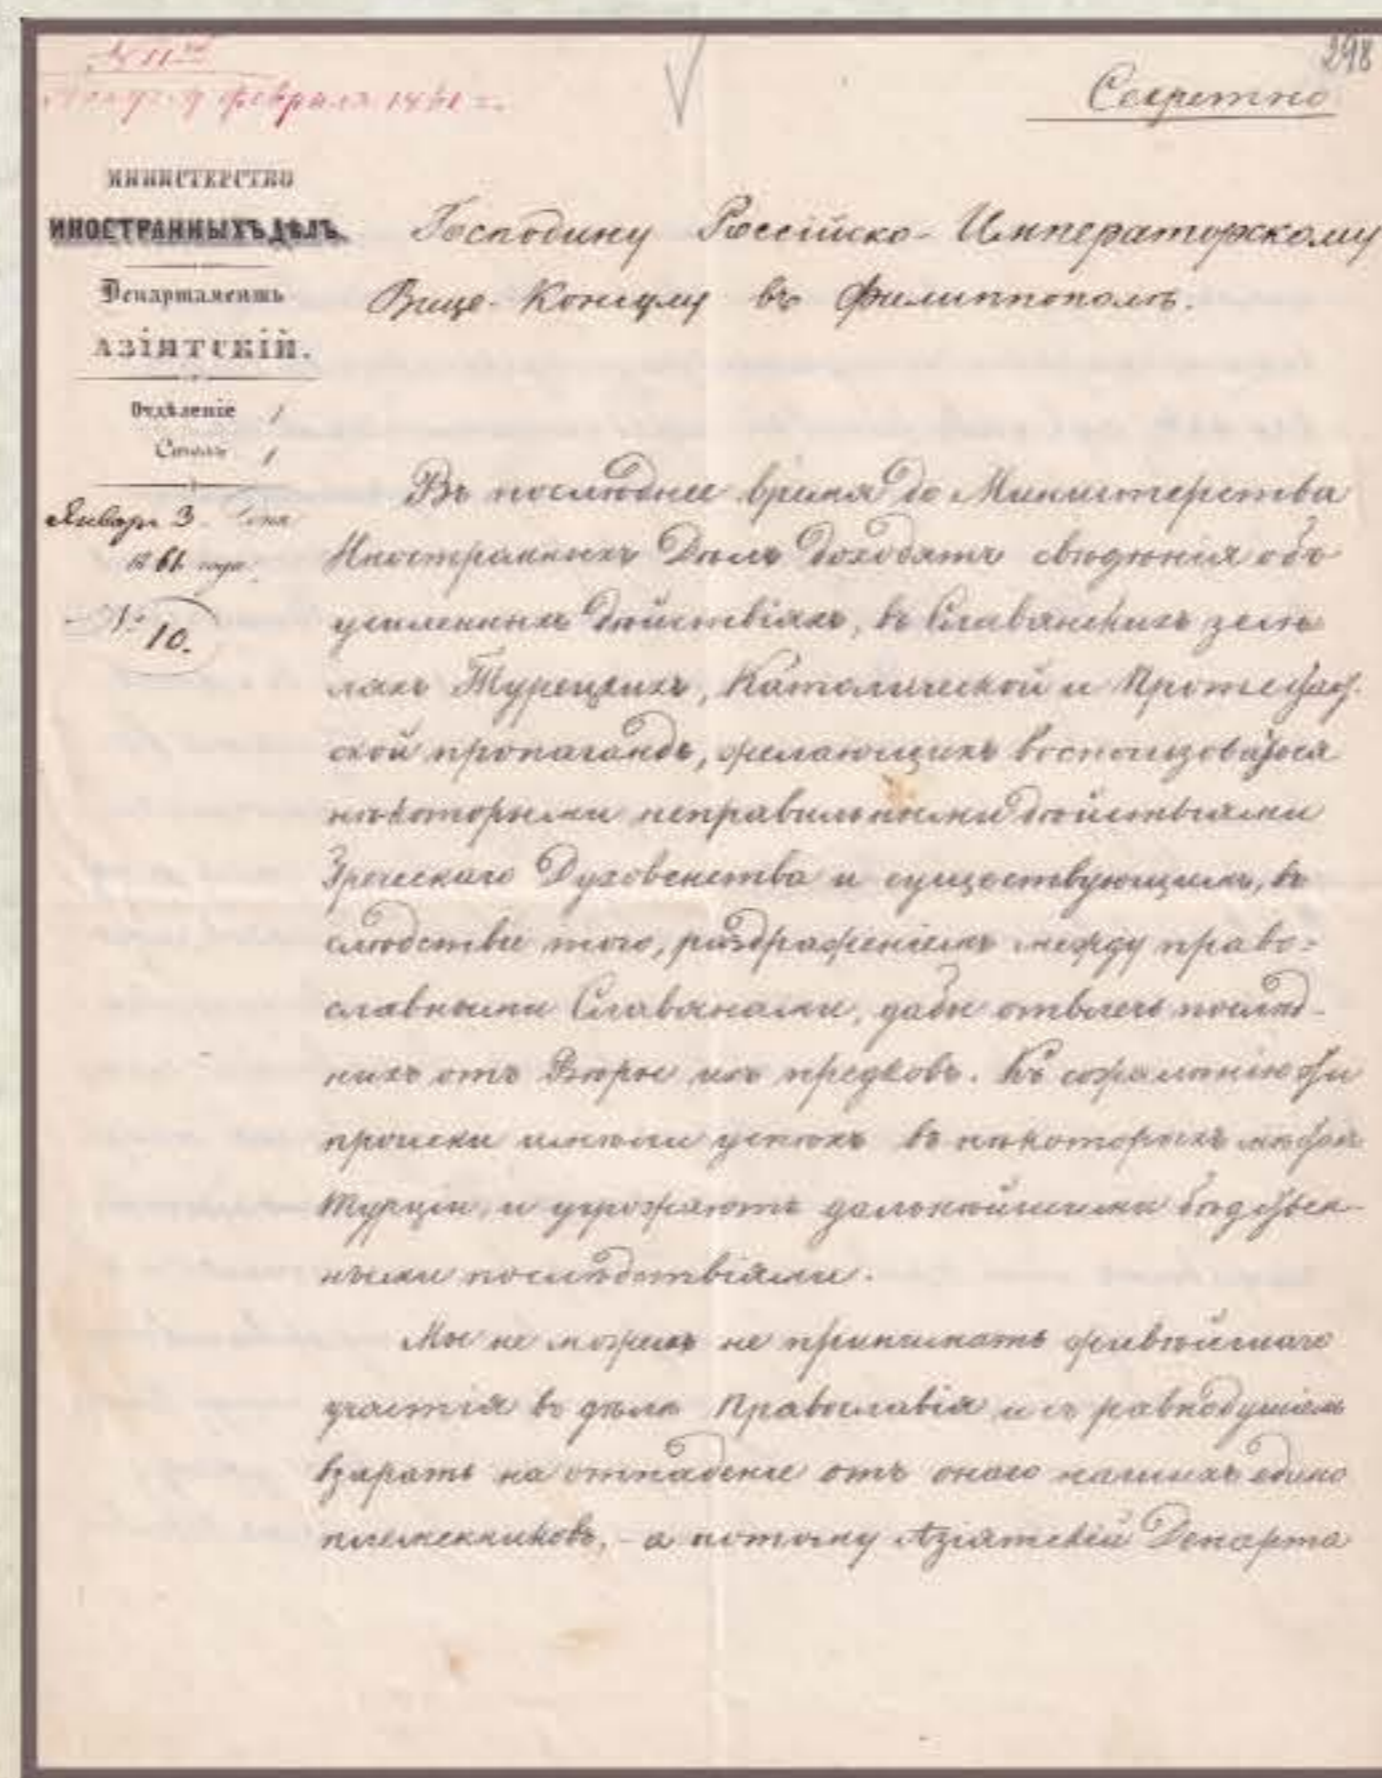 298
Секретно
февраля 1861
МИНИСТЕРСТВО
ИНОСТРАННЫХЪ ДѢЛЪ.
Департаментъ
АЗІЯТСКІЙ.
Отдѣленіе 1
Столъ 1
Января 3 дня
1861 года
№ 10.
Господину Россійско-Императорскому
Вице-Консулу въ Филиппополѣ.
Въ послѣднее время до Министерства
Иностранныхъ Дѣлъ доходятъ свѣдѣнія объ
усиленныхъ дѣйствіяхъ, въ Славянскихъ зем
ляхъ Турецкихъ, Католической и Протестант
ской пропагандъ, желающихъ воспользоваться
нѣкоторыми неправильными дѣйствіями
Греческаго Духовенства и существующимъ, въ
слѣдствіе того, раздраженіемъ между право=
славными Славянами, дабы отвлечь послѣд-
нихъ отъ Вѣры ихъ предковъ. Къ сожалѣнію эти
происки имѣли успѣхъ въ нѣкоторыхъ мѣстахъ
Турціи, и угрожаютъ дальнѣйшими бѣдствен-
ными послѣдствіями.
Мы не можемъ не принимать живѣйшаго
участія въ дѣлѣ Православія и съ равнодушіемъ
взирать на отпаденіе отъ онаго нашихъ едино
племенниковъ, - а потому Азіятскій Департа